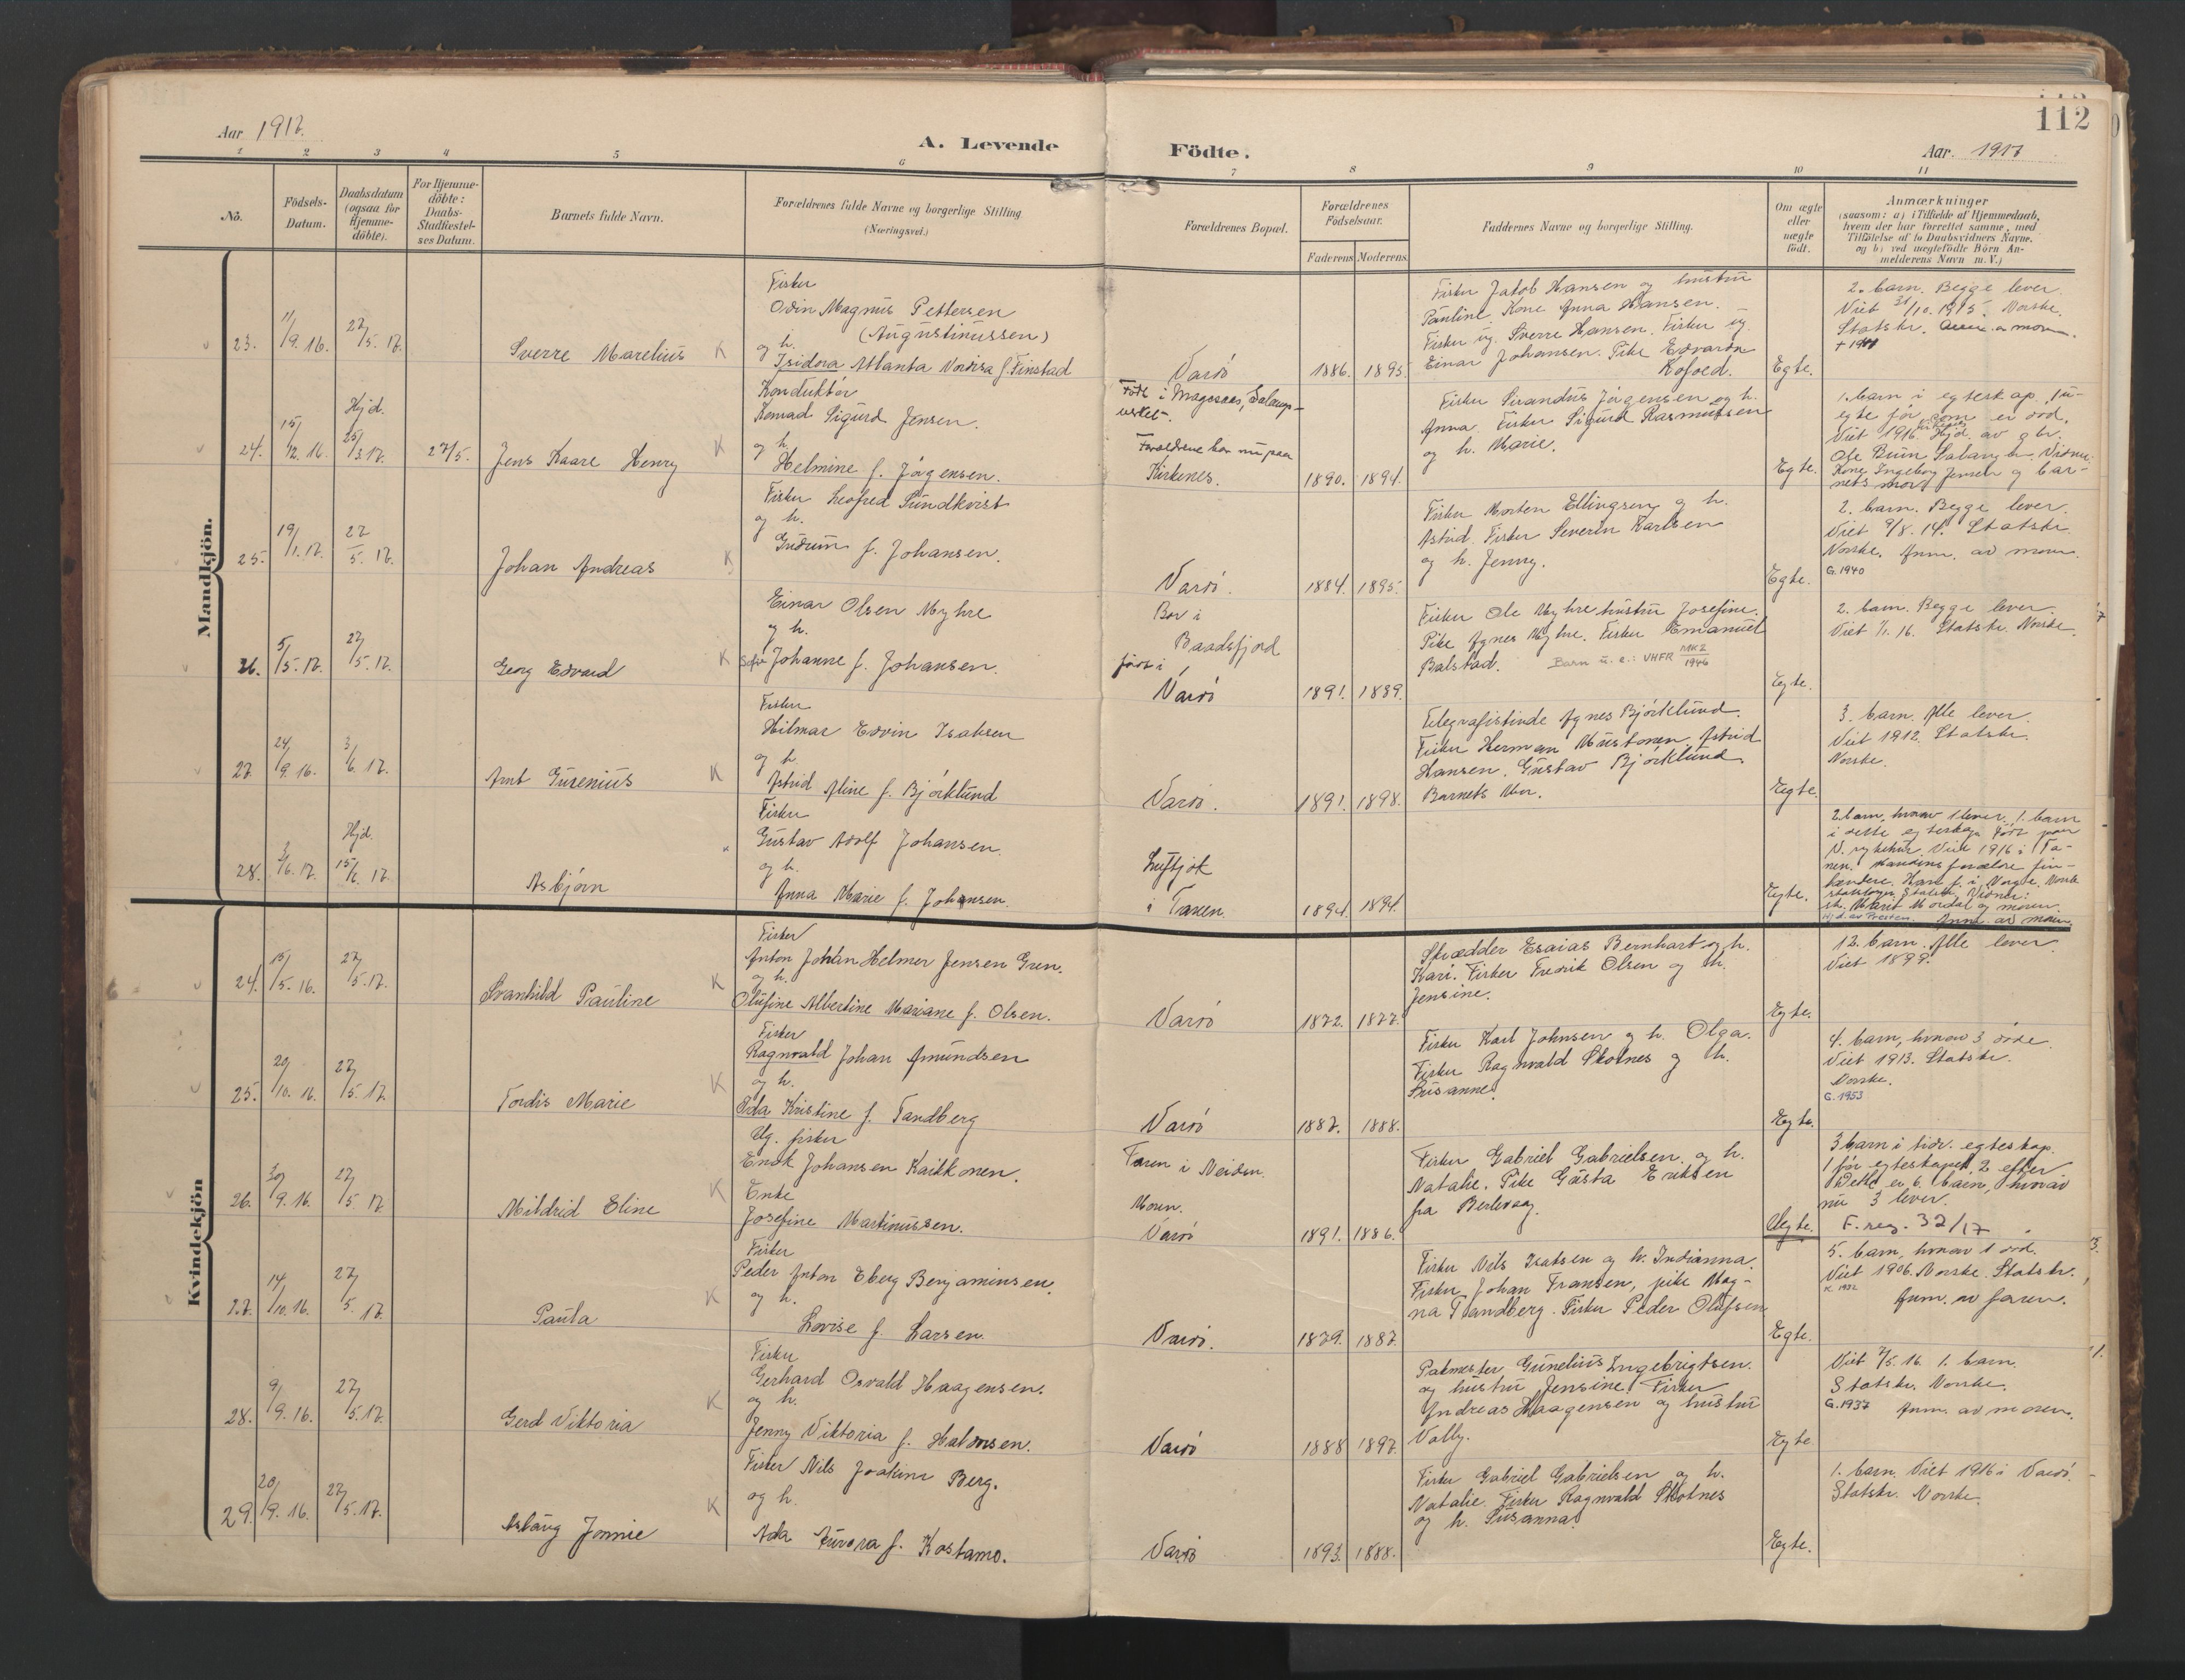 112
Aar 1917.
A. Levende
Födte.
Aar. 1917
1 2 3 4 5 6 7 8 9 10 11
No.
Födsels-
Datum.
Daabsdatum
(ogsaa for
Hjemme-
döbte).
For Hjemme-
döbte:
Daabs-
Stadfæstel-
ses Datum.
Barnets fulde Navn.
Forældrenes fulde Navne og borgerlige Stilling
(Næringsvei.)
Forældrenes Bopæl.
Forældrenes
Födselsaar.
Faderens Moderens
Faddernes Navne og borgerlige Stilling.
Om ægte
eller
uægte
födt.
Anmærkninger
(saasom: a) i Tilfælde af Hjemmedaab,
hvem der har forrettet samme, med
Tilföielse af to Daabsvidners Navne.
og b) ved uægtefödte Börn An-
melderens Navn m. V.)
Mandkjön.
23.
11/9. 16.
27/5. 17.
Sverre Marelius K
Fisker
Odin Magnus Pettersen
(Augustinussen)
og h.
Isidora Atlanta Nordisa f. Finstad
Vardö
1886. 1895.
Fisker Jakob Hansen og hustru
Pauline. Kone Anna Hansen.
Fisker ug. Sverre Hansen. Fisker ug.
Einar Johansen. Pike Edvarda
Kofoed.
Egte.
2. barn. Begge lever.
Viet 31/10. 1915. Norske.
Statskr. Anm. a moren.
24.
15/12. 16.
Hjd.
25/3. 17.
27/5.
Jens Kaare Henry K
Konduktör
Konrad Sigurd Jensen.
og h.
Helmine f. Jörgensen.
Forældrene bor nu paa
Kirkenes.
1890. 1894.
Fisker Sirandus Jörgensen og h.
Anna. Fisker Sigurd Rasmussen
og h. Marie.
Egte.
1. barn i egteskap, 1 u-
egte för som er död.
Viet 1916. Hjd. av gbr.
Ole Brun Sabangbr. Vidner:
Kone Ingeborg Jensen og bar-
nets mor.
25.
19/1. 17.
27/5. 17.
Johan Andreas K
Fisker Leofred Sundkvist
og h.
Gudrun f. Johansen.
Vardö.
1884. 1895.
Fisker Morten Ellingsen og h.
Astrid. Fisker Severin Karlsen
og h. Jenny.
Egte.
2. barn. Begge lever.
Viet 9/8. 14. Statskr.
Norske. Anm. av moren.
G. 1940
26.
5/5. 17.
27/5. 17.
Georg Edvard K
Einar Olsen Myhre
og h.
Sofie Johanne f. Johansen.
Bor i
Baadsfjord
född i
Vardö
1891. 1889.
Fisker Ole Myhre hustru Josefine.
Pike Agnes Myhre. Fisker Emanuel
Balstad.
Barn u. e.: VHFR MK2/1946
Egte.
2. barn. Begge lever.
Viet 1/1. 16. Statskr. Norske.
27.
24/9. 16.
3/6. 17.
Arnt Gurenius K
Fisker
Hilmar Edvin Isaksen
og h
Astrid Aline f. Björklund
Vardö.
1891. 1898.
Telegrafistinde Agnes Björklund.
Fisker Herman Mustonen, Astrid
Hansen. Gustav Björklund.
Barnets Mor.
Egte.
3. barn. Alle lever.
Viet 1912. Statskr.
Norske.
28.
3/6. 17.
Hjd.
15/6. 17
Asbjörn
Fisker
Gustav Adolf Johansen.
og h.
Anna Marie f. Johansen.
Luftjok
i Tanen.
1894. 1894.
Egte.
2. barn, hvorav 1 lever. 1. barn
i dette egteskap födt paa
V. sykehus. Viet 1916 i Ta-
nen.
Vidner:
Marit Mordal og moren.
Hjd. av Presten. Anm. av moren.
Kvindekjön
24.
15/5. 16.
27/5. 17.
Svanhild Pauline K
Fisker
Anton Johan Helmer Jensen Gren.
og h.
Olufine Albertine Mariane f. Olsen.
Vardö
1872. 1877.
Skrædder Esaias Bernhart og h.
Kari. Fisker Fredrik Olsen og h.
Jensine.
Egte.
12. barn. Alle lever.
Viet 1899.
25.
20/10. 16.
27/5. 17.
Tordis Marie K
Fisker
Ragnvald Johan Amundsen
og h.
Ida Kristine f. Tandberg
Vardö
1887. 1888.
Fisker Karl Johnsen og h. Olga.
Fisker Ragnvald Skotnes og h.
Susanne.
Egte.
4. barn, hvorav 3 döde.
Viet 1913. Statskr.
Norske.
G. 1953
26.
30/9. 16
27/5. 17
Mildrid Eline K
Ug. fisker
Enok Johansen Kaikkonen.
Enke
Josefine Martinussen.
Faren i Neiden.
Moren.
Vardö
1891. 1886.
Fisker Gabriel Gabrielsen og h.
Natalie. Pike Gusta Eriksen
fra Berlevaag.
Uegte.
3 barn i tidl. egteskap.
1 för egteskapet, 2 efter
Dette er 6. barn, hvorav
nu 3 lever.
F. reg. 32/17
27.
14/10. 16.
27/5. 17.
Paula K
Fisker
Peder Anton Eberg Benjaminsen.
og h.
Lovise f. Larsen.
Vardö.
1879. 1887.
Fisker Nils Isaksen og h. Indianna.
Fisker Johan Fransen, pike Mag-
na Tandberg. Fisker Peder Olufsen
Egte.
5. barn, hvorav 1 död.
Viet 1906. Norske. Statskr.
K 1932
Anm. av faren.
28.
9/9. 16.
27/5. 17.
Gerd Viktoria K
Fisker
Gerhard Osvald Haagensen.
og h.
Jenny Viktoria f. Halvorsen.
Vardö
1888 1897.
Pakmester Gunelius Ingebrigtsen.
og hustru Jensine. Fisker
Andreas Haagensen og hustru
Vally.
Egte
Viet 7/5. 16. 1. barn.
Statskr. Norske.
G. 1937 Anm. av moren.
29.
20/9. 16.
27/5. 17.
Aslaug Jonnie K
Fisker Nils Joakim Berg.
og h.
Ada Aurora f. Kostamo.
Vardö
1893. 1888.
Fisker Gabriel Gabrielsen og h.
Natalie. Fisker Ragnvald Skotnes
og h. Susanna.
Egte.
1. barn. Viet 1916 i Vardö.
Statskr. Norske.